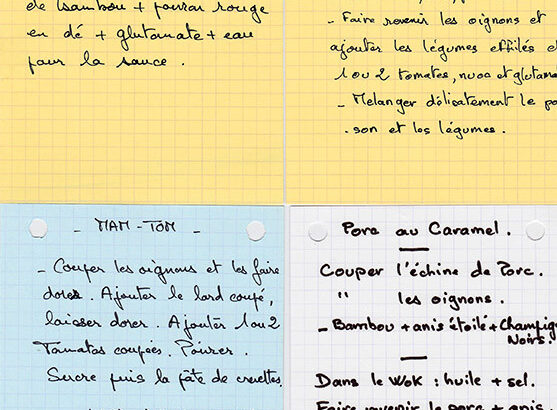 de bambou + poivron rouge
en dé + glutamate + eau
pour la sauce .
- Faire revenir les oignons et
ajouter les légumes effilés et
1 ou 2 tomates, nuoc et glutama
- Melanger délicatement le po
. son et les légumes .
- MAM - TOM -
- Couper les oignons et les faire
dorer . Ajouter le lard coupé,
laisser dorer . Ajouter 1 ou 2
Tomates coupées . Poivrer .
Sucre puis la pâte de crevettes.
Porc au Caramel .
Couper l'échine de Porc .
" les oignons .
- Bambou + anis étoilé + Champign
Noirs .
Dans le Wok : huile + sel .
Faire revenir le porc + anis